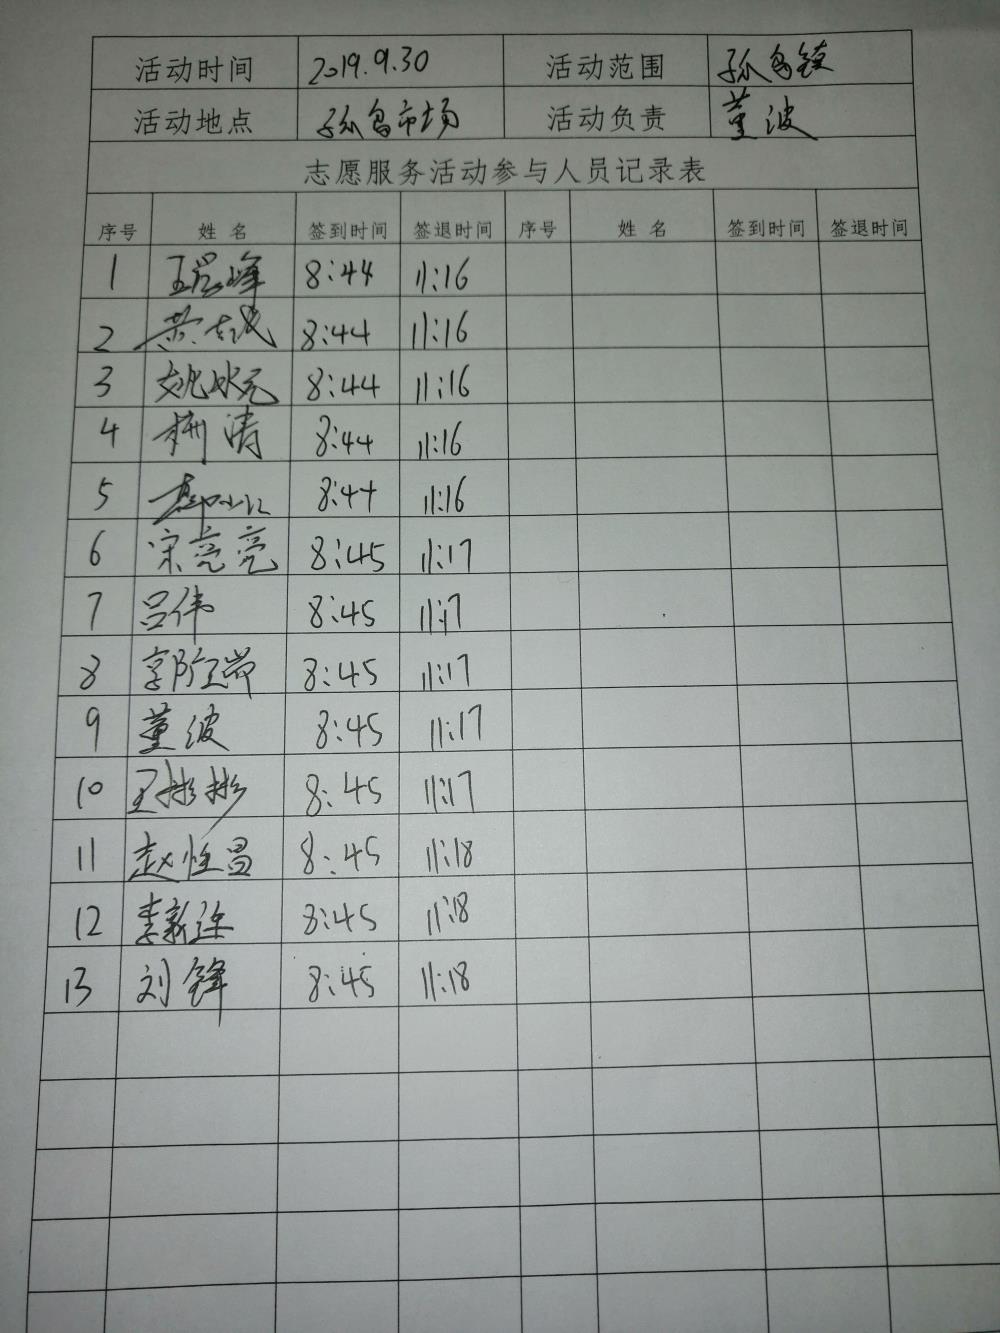 活动时间 2019.9.30 活动范围 孤岛镇
活动地点 孤岛市场 活动负责 董波
志愿服务活动参与人员记录表
序号 姓名 签到时间 签退时间 序号 姓名 签到时间 签退时间
1 王晨峰 8:44 11:16
2 黄 8:44 11:16
3 姚状元 8:44 11:16
4 杨涛 8:44 11:16
5 8:44 11:16
6 宋亮亮 8:45 11:17
7 吕伟 8:45 11:17
8 8:45 11:17
9 董波 8:45 11:17
10 王彬彬 8:45 11:17
11 赵恒昌 8:45 11:18
12 李新 8:45 11:18
13 刘锋 8:45 11:18